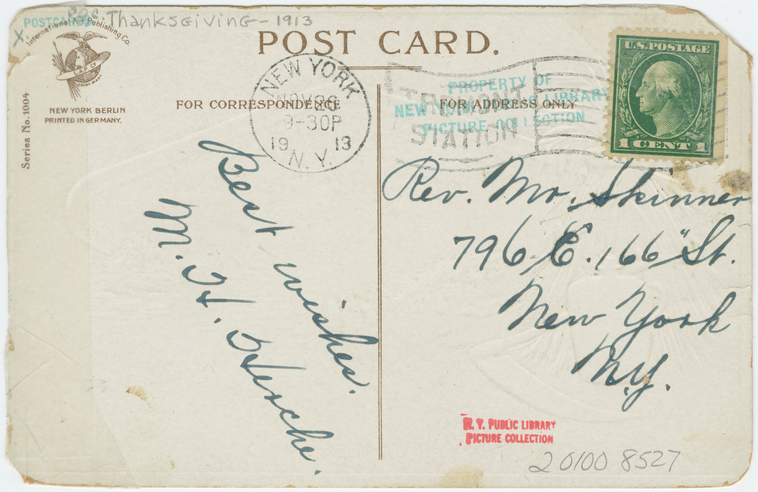 POSTCARDS Thanksgiving - 1913
X
International Art Publishing Co.
NEW YORK BERLIN
PRINTED IN GERMANY.
Series No. 1004
POST CARD.
FOR CORRESPONDENCE
FOR ADDRESS ONLY
NEW YORK
NOV 26
9-30P
1913
N.Y.
TREMONT
STATION
PROPERTY OF
NEW YORK PUBLIC LIBRARY
PICTURE COLLECTION
U.S. POSTAGE
1 CENT 1
Best wishes.
M. H.
Rev. Mr. Skinner
796 E. 166" St.
New York
N.Y.
N. Y. PUBLIC LIBRARY
PICTURE COLLECTION
20100 8527